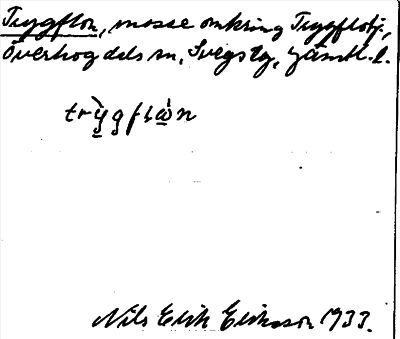 Tryggflon, mosse omkring Tryggflotj.,
Överhogdals sn, Svegs tg, Jämtl. l.
trỳgflὼn
Nils Erik Eriksson 1933.